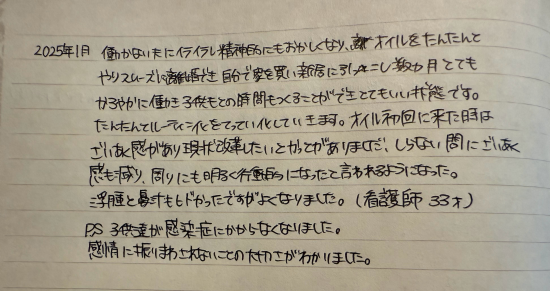 2025年1月 働かない夫にイライラし精神的にもおかしくなり、オイルをたんたんと
やりスムーズに離婚でき自分で家を買い新居に引っこし数カ月とても
かろやかに働き子供もとの時間もつくることができとてもいい状態です。
たんたんとルーティン化をてってい化していきます。オイル初回に来た時は
ざいあく感があり現状改革したいとかってがありましたが、しらない間にざいあく
感も減り、周りにも明るく行動的になったと言われるようになった。
浮腫と鼻汁もひどかったですがよくなりました。(看護師 33才)
PS 子供達が感染症にかからなくなりました。
感情に振りまわされないことの大切さがわかりました。